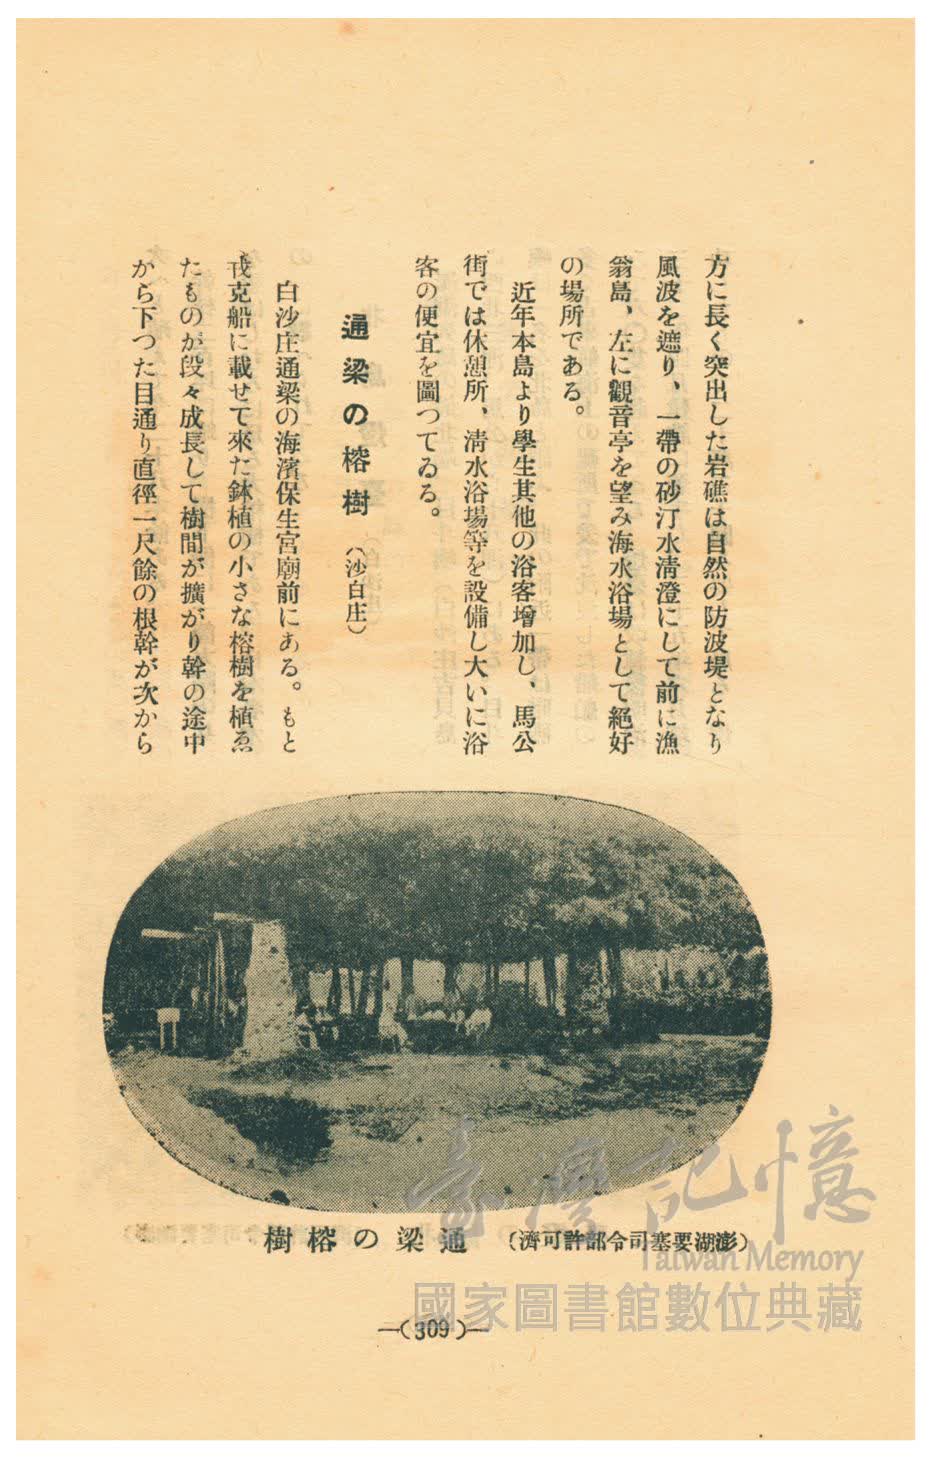 方に長く突出した岩礁は自然の防波堤となり
風波を遮り、一帶の砂汀水淸澄にして前に漁
翁島、左に觀音亭を望み海水浴場として絕好
の場所である。
近年本島より學生其他の浴客增加し、馬公
街では休憩所、淸水浴場等を設備し大いに浴
客の便宜を圖つてゐる。
通梁の榕樹 （沙白庄）
白沙庄通梁の海濱保生宮廟前にある。もと
戎克船に載せて來た鉢植の小さな榕樹を植ゑ
たものが段々成長して樹間が擴がり幹の途中
から下つた目通り直徑一尺餘の根幹が次から
樹榕の梁通 （濟可許部令司塞要湖澎）
—(309)—
臺灣記憶
Taiwan Memory
國家圖書館數位典藏